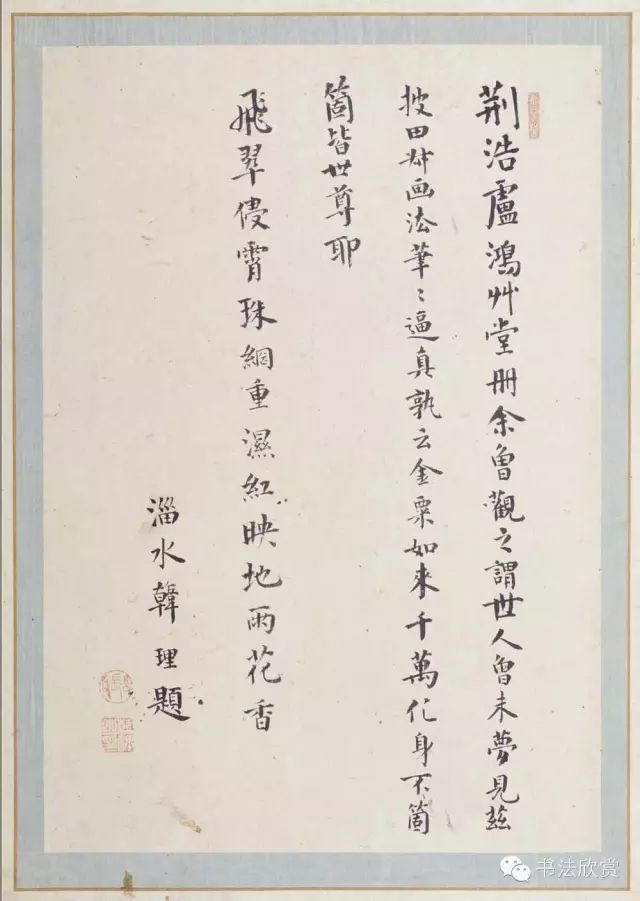 荆浩盧鴻艸堂册余曾觀之謂世人曾未夢見茲
披田叔画法筆〻逼真孰云金粟如來千萬化身不箇
箇皆世尊耶
飛翠侵霄珠網重濕紅映地雨花香
淄水韓理題
书法欣赏